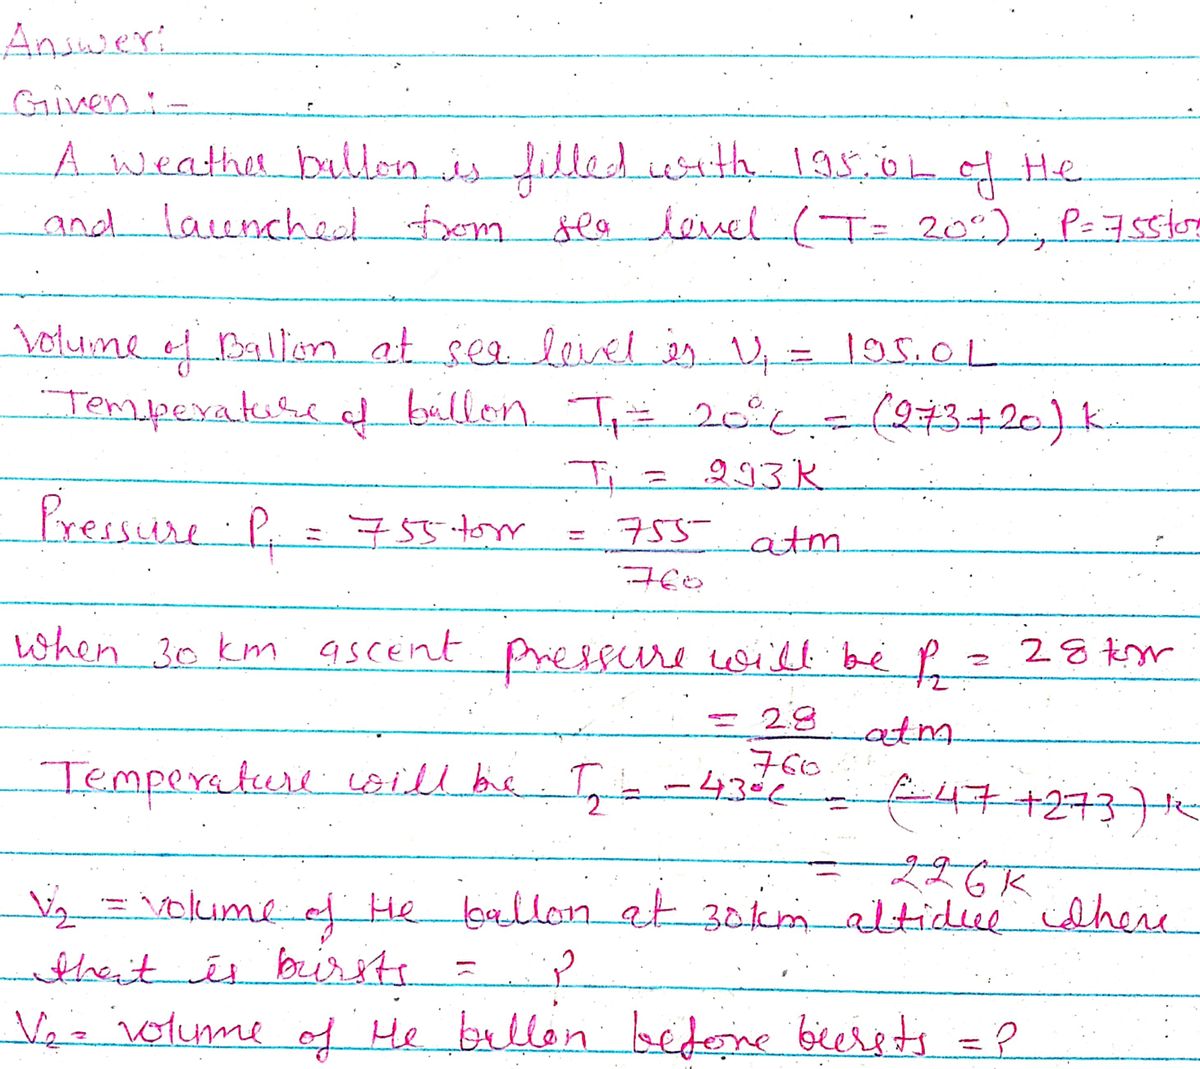 Answer:
Given :-
A weather ballon is filled with 195.0L of He
and launched from sea level (T= 20°), P=755tor
Volume of Ballon at sea level is V₁ = 195.0L
Temperature of ballon T₁ = 20°C = (273+20) k
T₁ = 293K
Pressure P₁ = 755 torr = 755/760 atm
when 30 km ascent pressure will be P₂ = 28 torr
= 28/760 atm
Temperature will be T₂ = -43°C = (-47 +273) k
= 226K
V₂ = volume of He ballon at 30km altidue where
that is bursts = ?
V₂ = volume of He ballon before bursts = ?